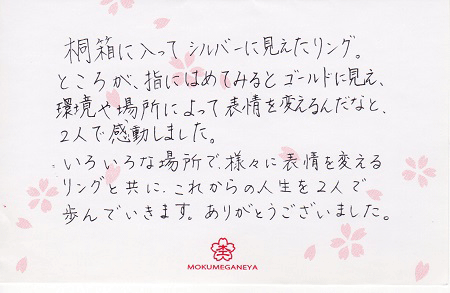 桐箱に入ってシルバーに見えたリング。
ところが、指にはめてみるとゴールドに見え、
環境や場所によって表情を変えるんだなと、
2人で感動しました。
いろいろな場所で、様々に表情を変える
リングと共に、これからの人生を2人で
歩んでいきます。ありがとうございました。
MOKUMEGANEYA